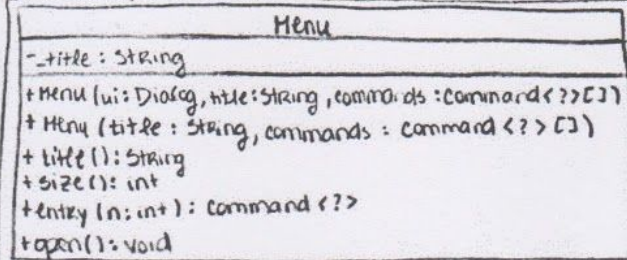 Menu
-_title : String
+ Menu (ui: Dialog, title: String, commands : Command<?>[])
+ Menu (title : String, commands : Command <?> [])
+ title(): String
+ size(): int
+ entry (n: int) : Command <?>
+ open(): void